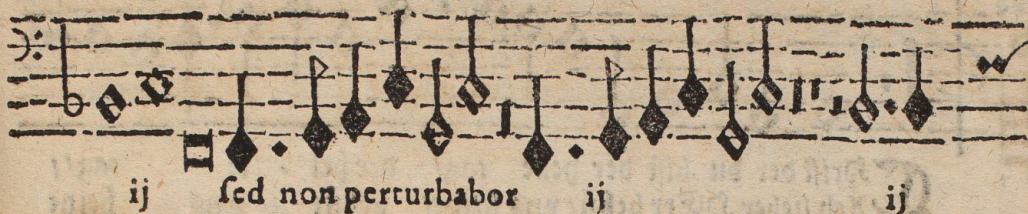 ij ſed non perturbabor ij ij